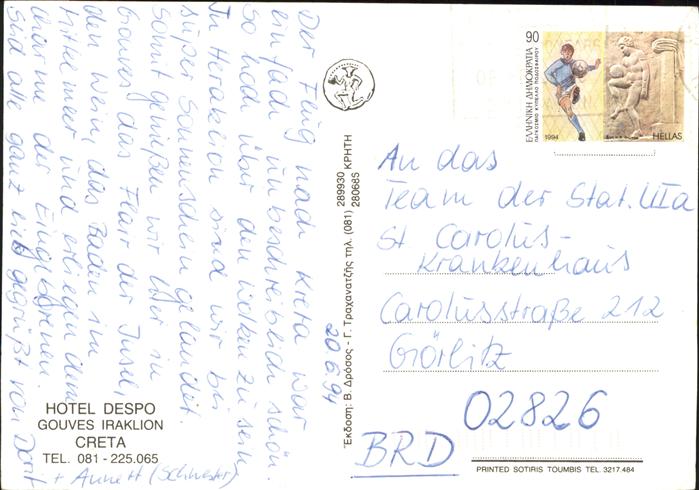 Der Flug nach Kreta war
einfach unbeschreiblich schön.
So hoch über den Wolken zu sein.
In Heraklion sind wir bei
super Sonnenschein gelandet.
Somit genießen wir hier in
Gouves das Flair der Insel,
den Wein, das Baden im
Mittelmeer und erliegen dem
Charme der Eingeborenen.
Seid alle ganz lieb gegrüßt von Dorit
+ Annett (Schwester)
20.6.94
HOTEL DESPO
GOUVES IRAKLION
CRETA
TEL. 081 - 225.065
Έκδοση: Β. Δρόσος - Γ. Τραχανατζής τηλ. (081) 289930 ΚΡΗΤΗ
280685
90
ΕΛΛΗΝΙΚΗ ΔΗΜΟΚΡΑΤΙΑ
ΠΑΓΚΟΣΜΙΟ ΚΥΠΕΛΛΟ ΠΟΔΟΣΦΑΙΡΟΥ
1994
HELLAS
An das
Team der Stat. IIIa
St. Carolus-
Krankenhaus
Carolusstraße 212
Görlitz
02826
BRD
PRINTED SOTIRIS TOUMBIS TEL. 3217.484